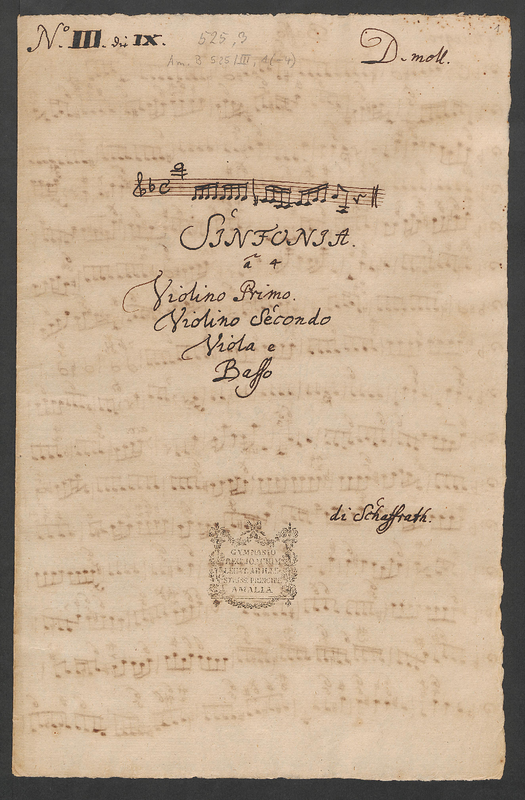 N.º III. die IX.
525,3
D. moll.
Am. B 525/III, 1(-4)
SINFONIA.
à 4
Violino Primo.
Violino Secondo
Viola e
Basso
di Schaffrath.
GYMNASIO
AMALIA